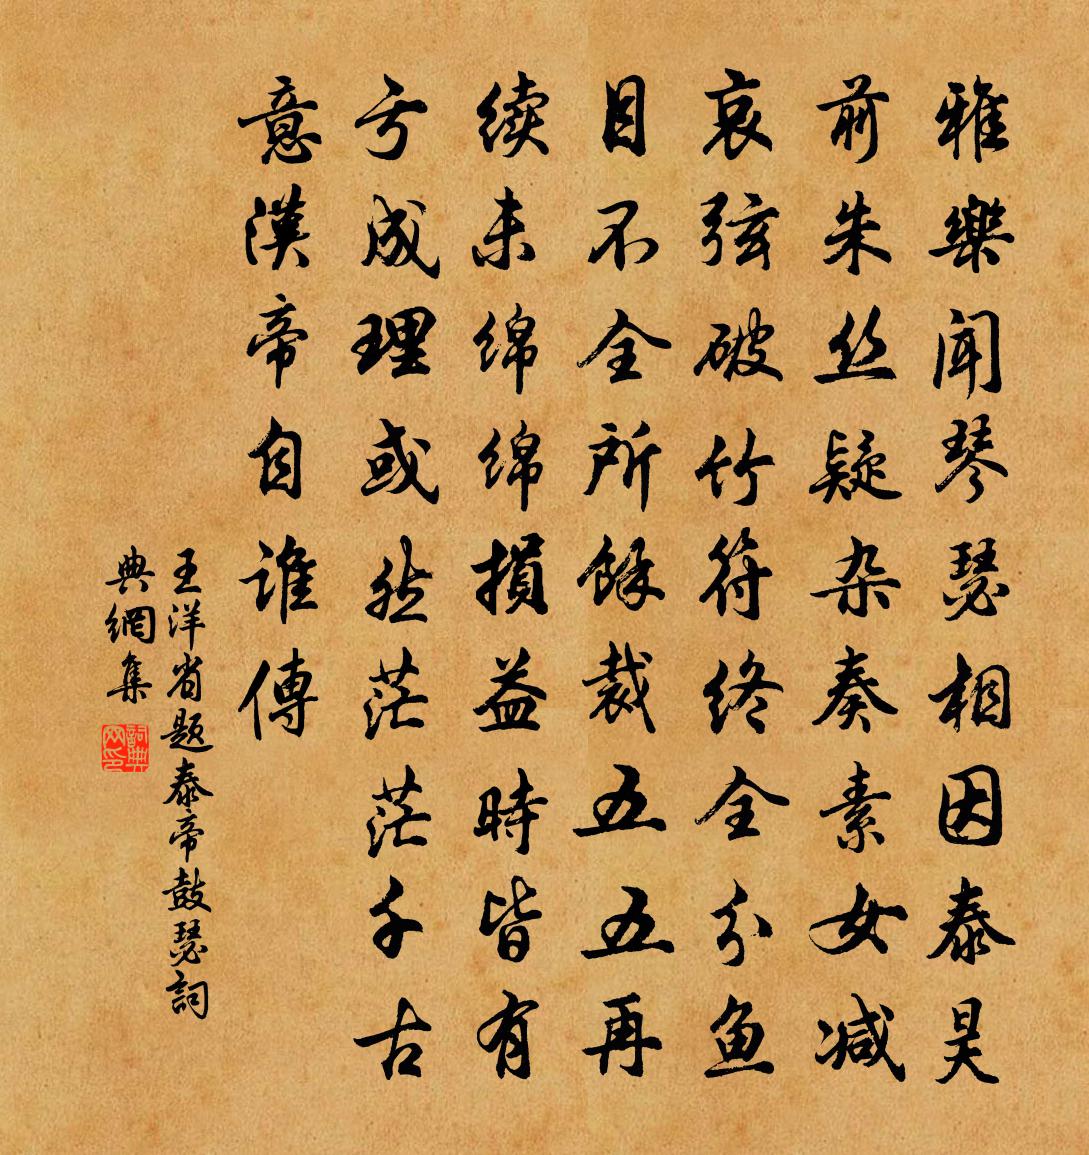 雅樂聞琴瑟相因泰昊
前朱丝疑杂奏素女减
哀弦破竹符终全分鱼
目不全所餘裁五五再
续未绵绵損益時皆有
亏成理或然茫茫千古
意漢帝自谁傳
王洋省题泰帝鼓瑟詞
典網集
詞典网印